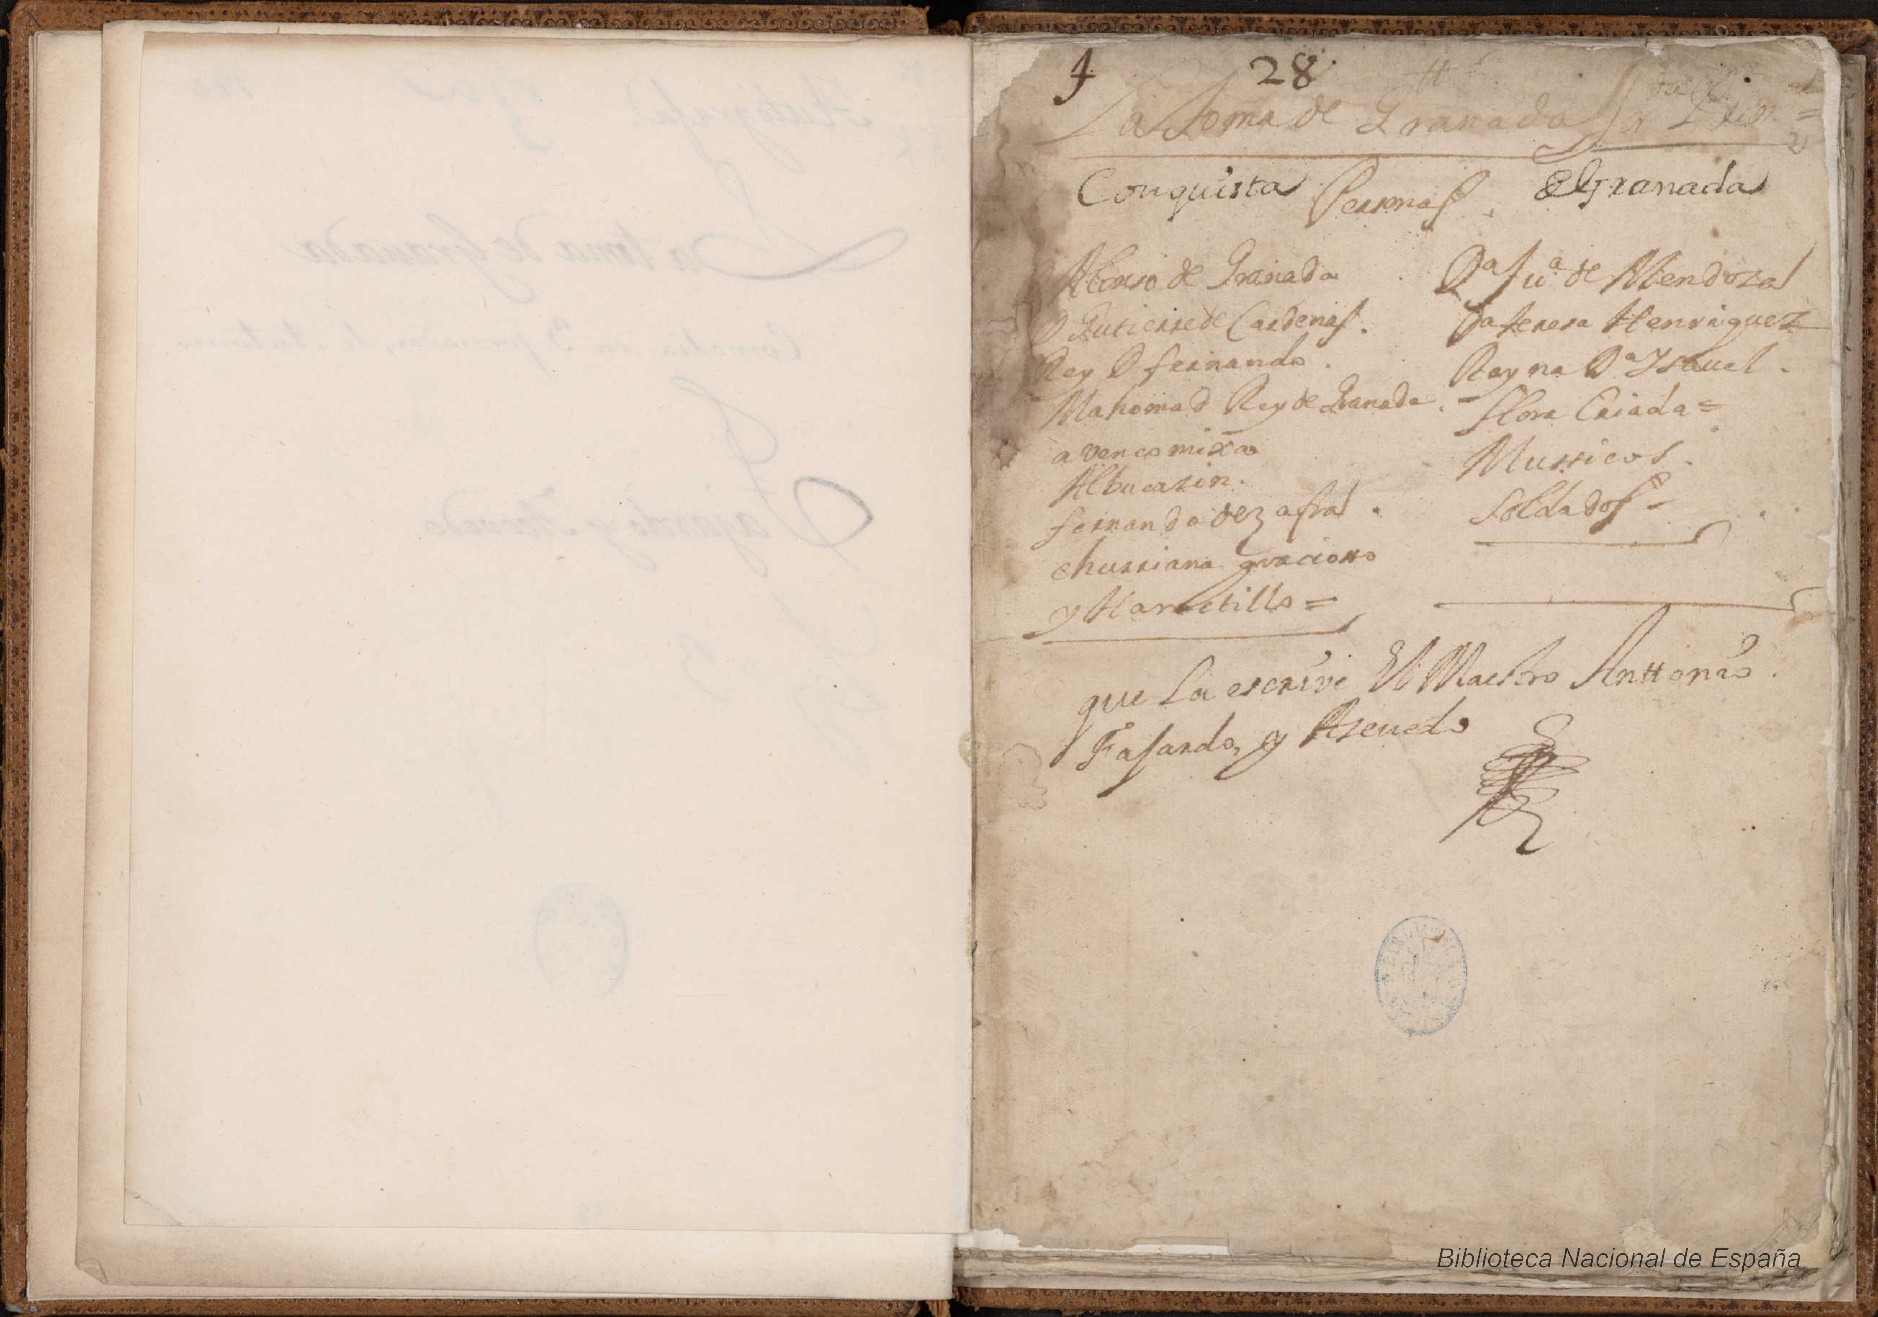 28
La Toma de Granada
Conquista Personas. de Granada
Alonso de Granada
D Gutierre de Cardenas.
Rey D fernando.
Mahomad Rey de Granada.
avencomixa
Albucazin.
fernando de zafra.
churriana graciosso
y Hametillo=
Dª Juª de Mendoza
Dª teresa Henriquez
Reyna Dª Ysavel.
flora Criada=
Mussicos.
Soldados=
que La escrive El Maestro Anttonio
Fajardo, y Asevedo
Biblioteca Nacional de España